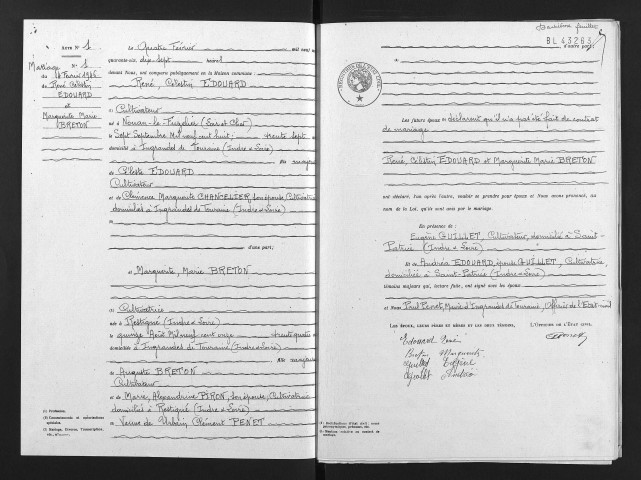 ACTE N° 1
Mariage N° 1
du 4 Février 1946
de René Célestin
EDOUARD
et
Marguerite Marie
BRETON
Le Quatre Février mil neuf
quarante-six, dix-sept heures
devant Nous, ont comparu publiquement en la Maison commune :
René, Célestin EDOUARD
(1) Cultivateur
né à Nouan-le-Fuzelier (Loir et Cher)
le Sept Septembre Mil neuf cent huit ; trente sept
domicilié à Ingrandes de Touraine (Indre et Loire)
fils majeur
de Céleste EDOUARD
Cultivateur
et de Clémence Marguerite CHANCELIER, son épouse, Cultivatrice
domiciliés à Ingrandes de Touraine (Indre et Loire)
d'une part ;
et Marguerite, Marie BRETON
(1) Cultivatrice
née à Restigné (Indre et Loire)
le quinze Août Mil neuf cent onze trente quatre
domiciliée à Ingrandes de Touraine (Indre et Loire)
fille majeure
de Auguste BRETON
Cultivateur
et de Marie, Alexandrine PIRON, son épouse, Cultivatrice
domiciliés à Restigné (Indre et Loire)
Veuve de Urbain Clément PENET
(1) Profession.
(3) Mariage, Divorce, Transcription,
etc., d'autre part ;
Deuxième feuillet
BL 43263
Les futurs époux déclarent qu'il n'a pas été fait de contrat
de mariage
René, Célestin EDOUARD et Marguerite Marie BRETON
ont déclaré, l'un après l'autre, vouloir se prendre pour époux et Nous avons prononcé, au
nom de la Loi, qu'ils sont unis par le mariage.
En présence de :
Eugène GUILLET, Cultivateur, domicilié à Saint-
Patrice (Indre et Loire)
et de Andréa EDOUARD, épouse GUILLET, Cultivatrice,
domiciliée à Saint-Patrice (Indre et Loire)
témoins majeurs qui, lecture faite, ont signé avec les époux
et Nous Paul Penet, Maire d'Ingrandes de Touraine, Officier de l'État civil
LES ÉPOUX, LEURS PÈRES ET MÈRES ET LES DEUX TÉMOINS,
L'OFFICIER DE L'ÉTAT CIVIL
Edouard René
Breton Marguerite
Guillet Eugène
Guillet Andréa